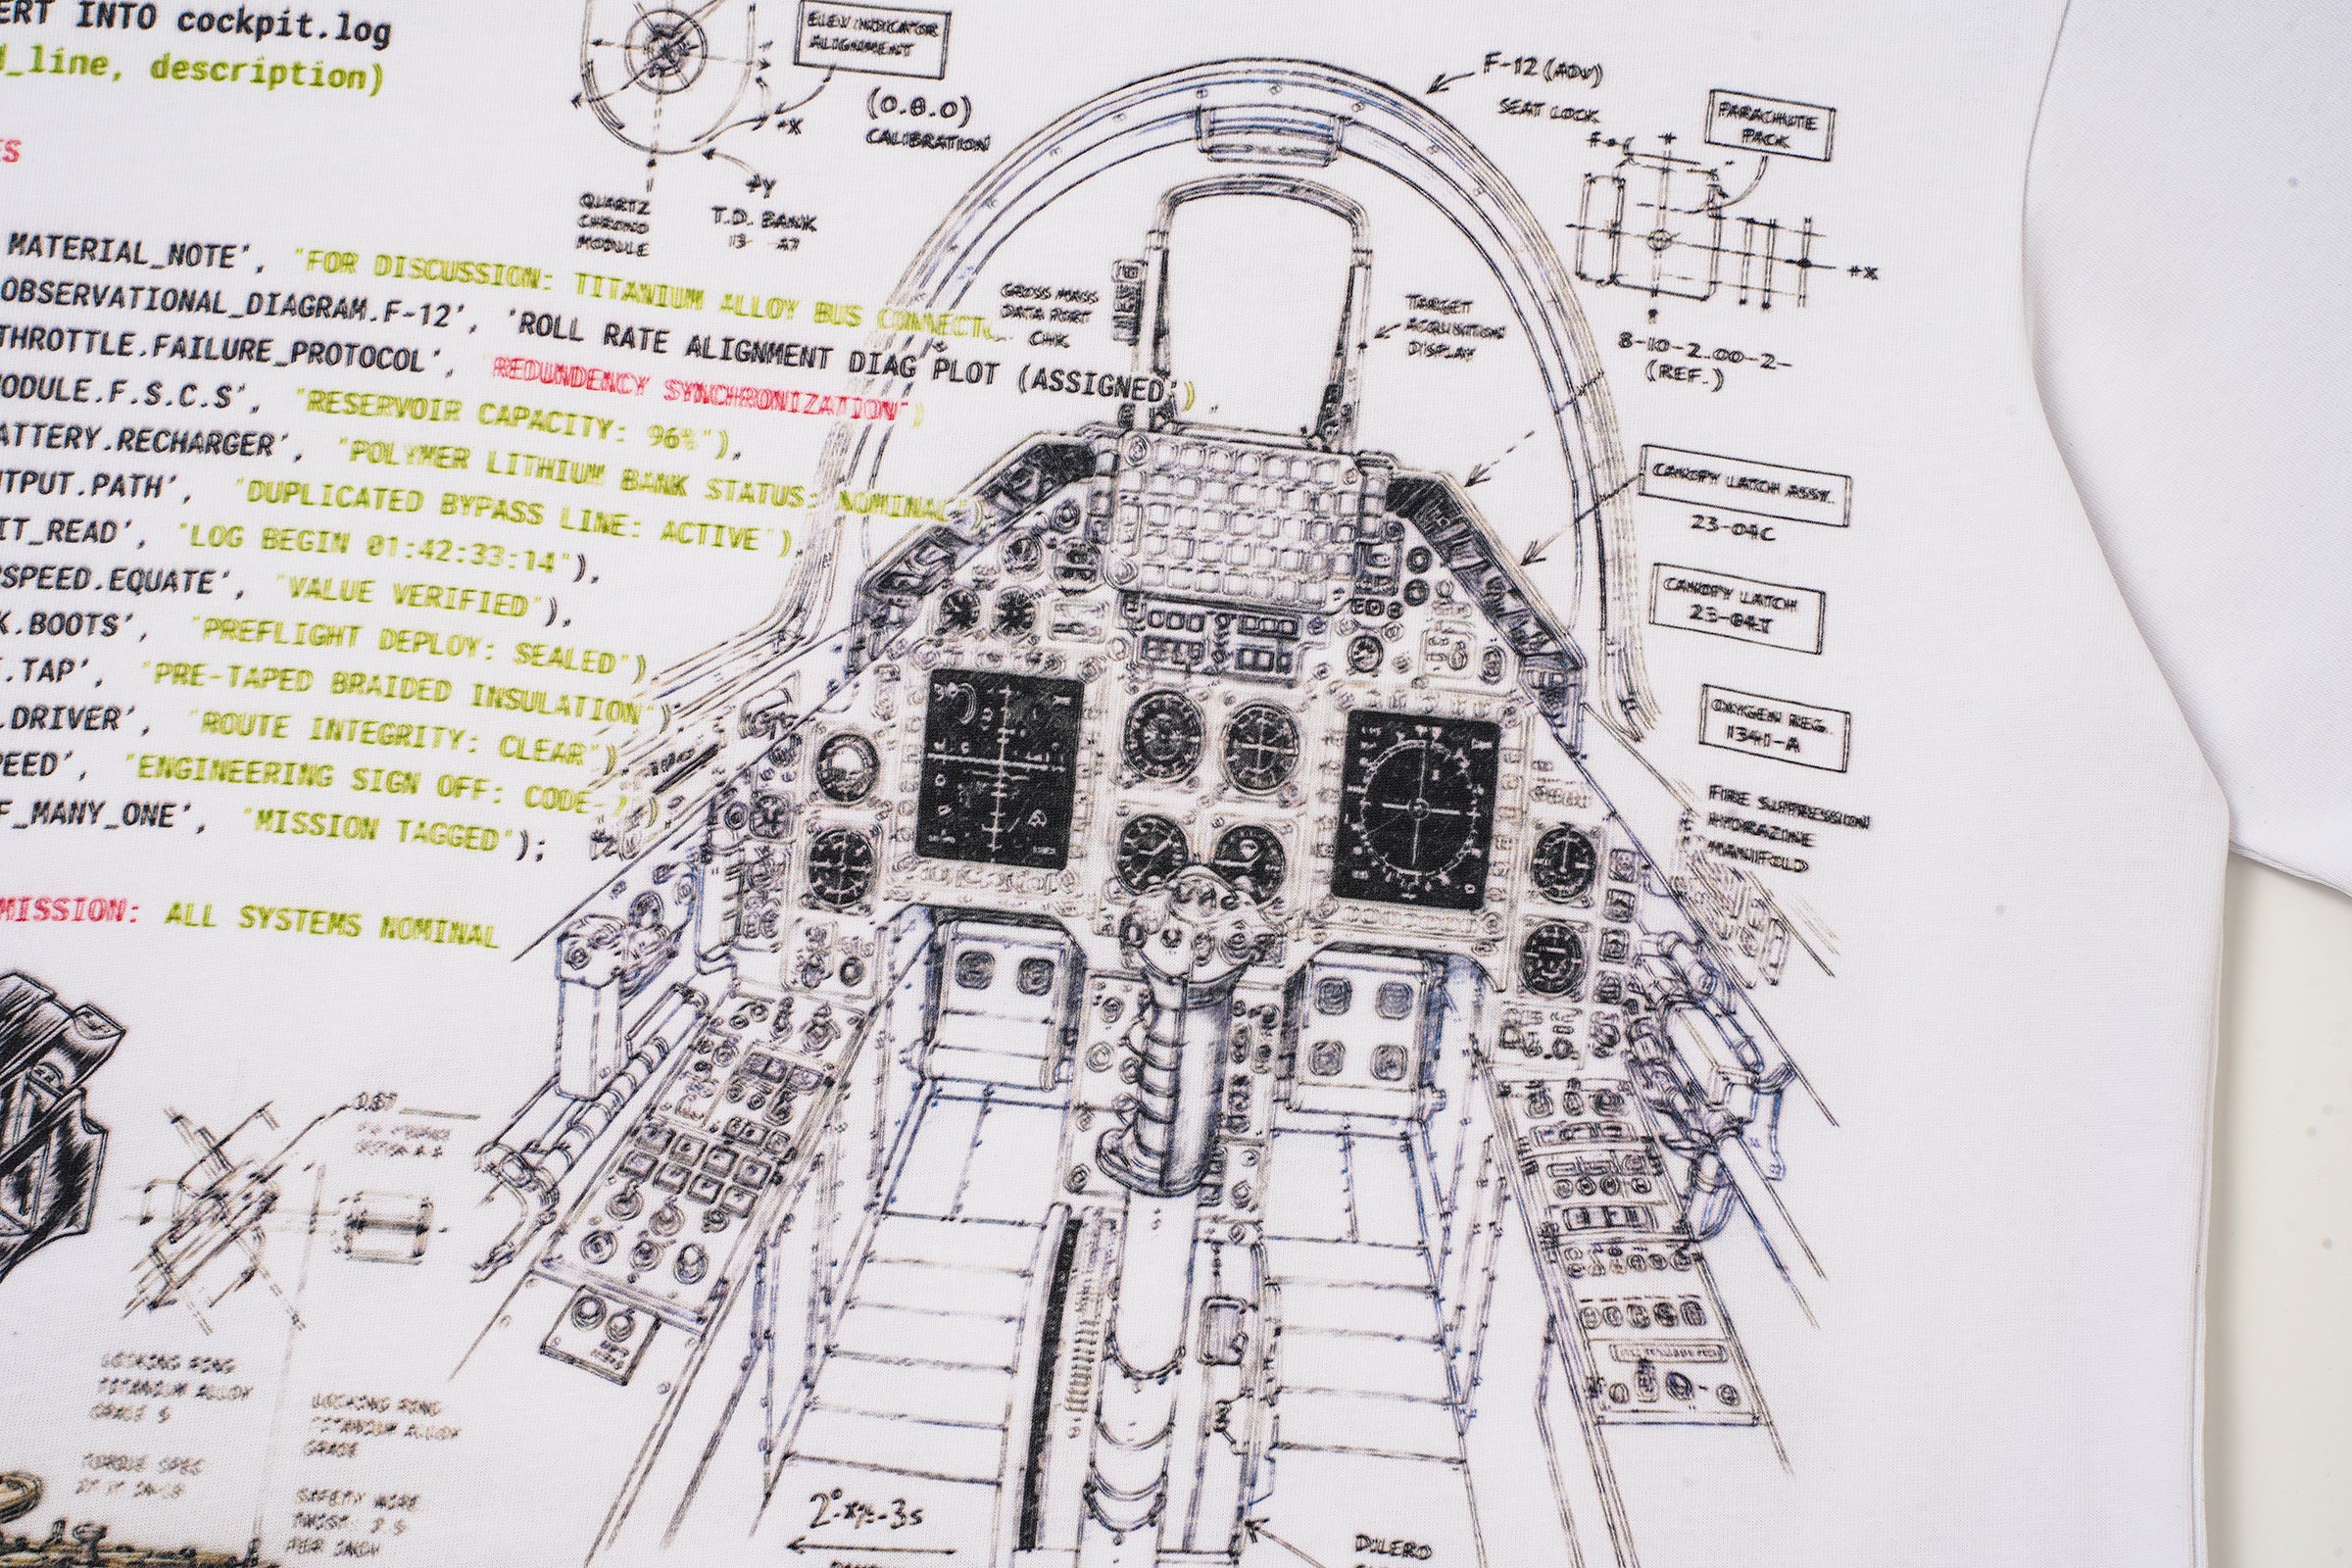 ERT INTO cockpit.log
d_line, description)
ES
MATERIAL_NOTE', "FOR DISCUSSION: TITANIUM ALLOY BUS
OBSERVATIONAL_DIAGRAM.F-12', 'ROLL RATE ALIGNMENT DIAG PLOT (ASSIGNED'),
THROTTLE.FAILURE_PROTOCOL', REDUNDENCY SYNCHRONIZATION")
MODULE.F.S.C.S', "RESERVOIR CAPACITY: 96%"),
ATTERY.RECHARGER', "POLYMER LITHIUM BANK STATUS: NOMINAL"),
UTPUT.PATH', "DUPLICATED BYPASS LINE: ACTIVE"),
IT_READ', "LOG BEGIN 01:42:33:14"),
SPEED.EQUATE', "VALUE VERIFIED"),
K.BOOTS', "PREFLIGHT DEPLOY: SEALED"),
.TAP', "PRE-TAPED BRAIDED INSULATION"),
.DRIVER', "ROUTE INTEGRITY: CLEAR"),
PEED', "ENGINEERING SIGN OFF: CODE-
F_MANY_ONE', "MISSION TAGGED");
MISSION: ALL SYSTEMS NOMINAL
ELEV INDICATOR
ALIGNMENT
(0.0.0)
CALIBRATION
+X
+Y
QUARTZ
CHRONO
MODULE
T.D. BANK
13 A7
GROSS MASS
DATA PORT
CHK
F-12 (ADV)
SEAT LOCK
PARACHUTE
PACK
+X
8-10-2.00-2-
(REF.)
TARGET
ACQUISITION
DISPLAY
CANOPY LATCH ASSY.
23-04C
CANOPY LATCH
23-04T
OXYGEN REG.
1341-A
FIRE SUPPRESSION
HYDRAZINE
MANIFOLD
LOCKING RING
TITANIUM ALLOY
GRADE 5
LOCKING RING
TITANIUM ALLOY
GRADE
TORQUE SPEC
SAFETY WIRE
TWIST
PER INCH
DILERO